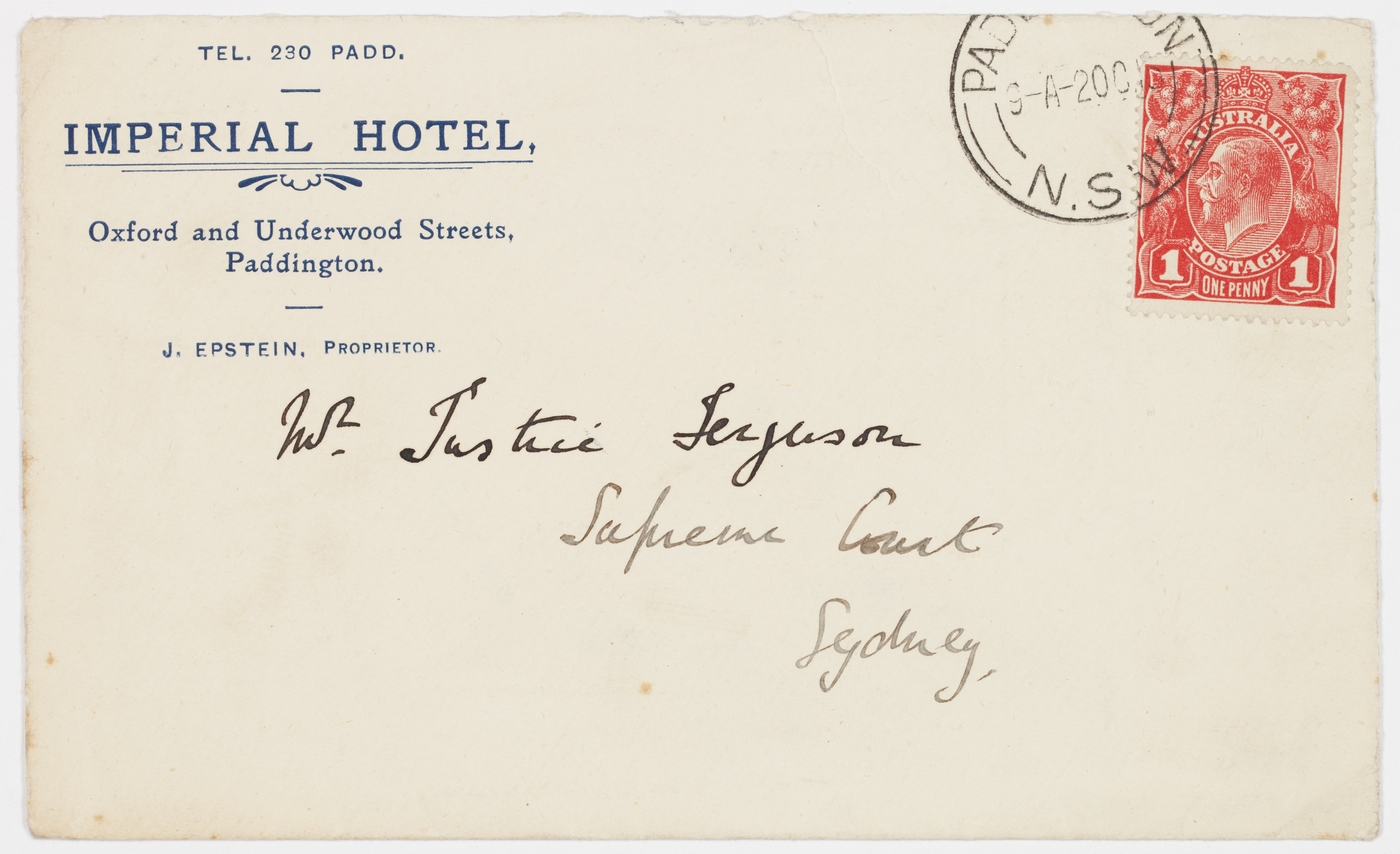 TEL. 230 PADD.
IMPERIAL HOTEL,
Oxford and Underwood Streets,
Paddington.
J. EPSTEIN, PROPRIETOR.
N.S.W
AUSTRALIA
POSTAGE
1 ONE PENNY 1
Mr. Justice Ferguson
Supreme Court
Sydney,